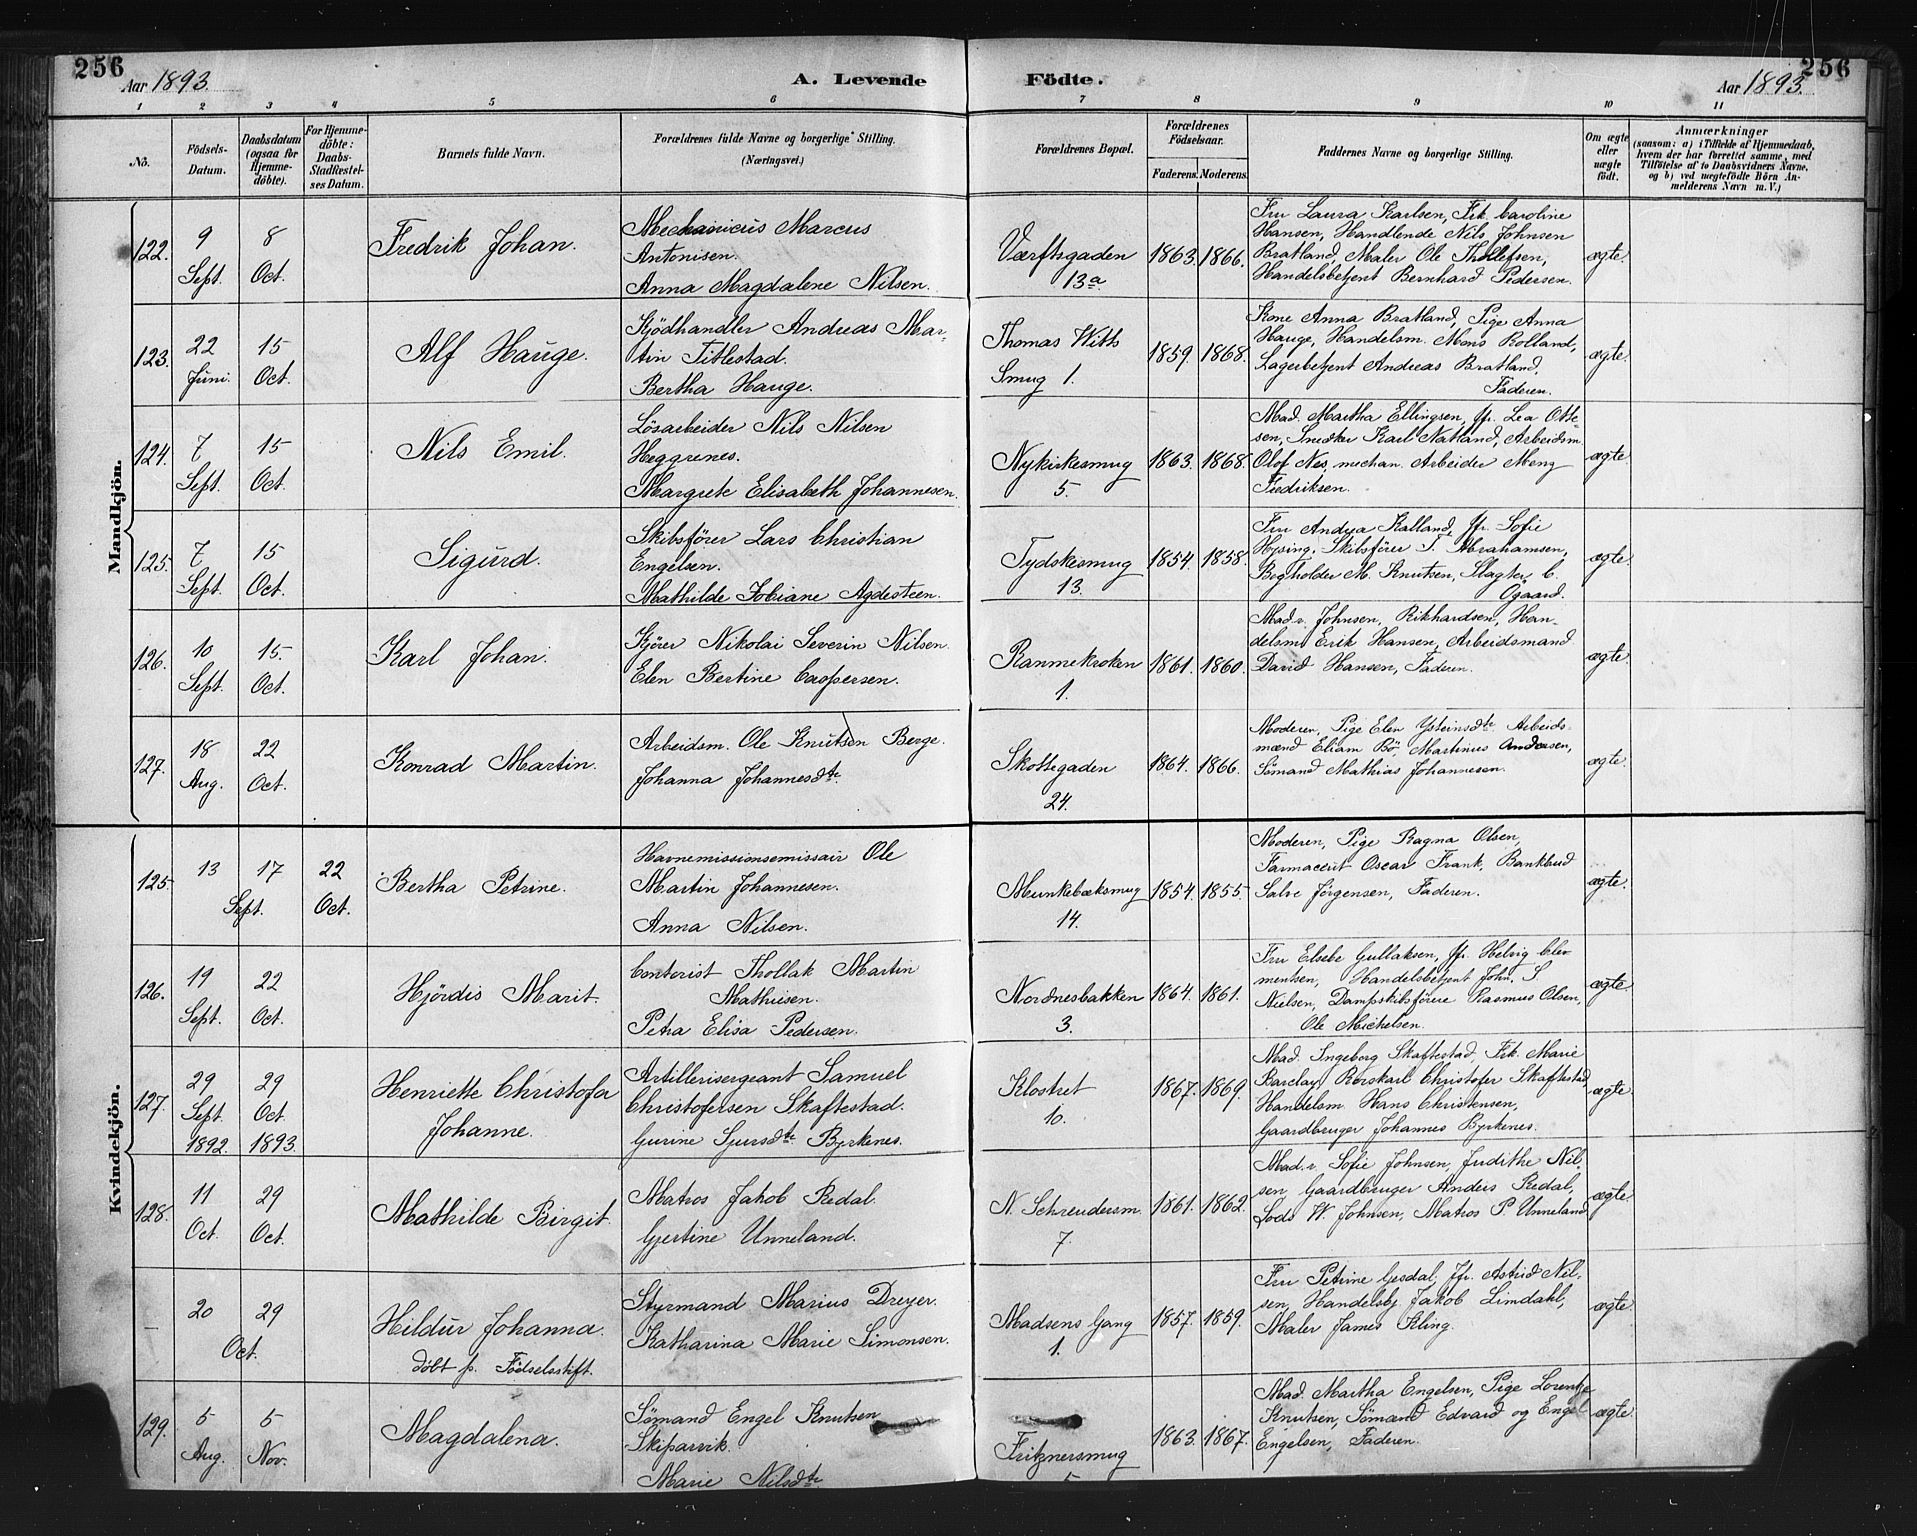 256
Aar 1893.
A. Levende Födte.
Aar 1893.
256
1 2 3 4 5 6 7 8 9 10 11
No.
Födsels-
Datum.
Daabsdatum
(ogsaa for
Hjemme-
döbte).
For Hjemme-
döbte:
Daabs-
Stadfæstel-
ses Datum.
Barnets fulde Navn.
Forældrenes fulde Navne og borgerlige Stilling.
(Næringsvei.)
Forældrenes Bopæl.
Forældrenes
Födselsaar.
Faderens. Moderens.
Faddernes Navne og borgerlige Stilling.
Om ægte
eller
uægte
födt.
Anmærkninger
(saasom: a) i Tilfælde af Hjemmedaab,
hvem der har forrettet samme, med
Tilföielse af to Daabsvidners Navne,
og b) ved uægtefödte Börn An-
melderens Navn m. V.)
Mandkjön.
122.
9
Sept.
8
Oct.
Fredrik Johan.
Mechanicus Marcus
Antonisen.
Anna Magdalene Nilsen.
Værftsgaden
13a.
1863. 1866.
Fru Laura Karlsen, Frk. Caroline
Hansen, Handlende Nils Johnsen
Bratland, Maler Ole Thollefsen,
Handelsbetjent Bernhard Pedersen.
ægte.
123.
22
Juni.
15
Oct.
Alf Hauge.
Kjödhandler Andreas Mar-
tin Titlestad.
Bertha Hauge.
Thomas Witts
Smug 1.
1859. 1868.
Kone Anna Bratland, Pige Anna
Hauge, Handelsm. Mons Rolland,
Lagerbetjent Andreas Bratland,
Faderen.
ægte.
124.
7
Sept.
15
Oct.
Nils Emil.
Lösarbeider Nils Nilsen
Heggrenes.
Margrete Elisabeth Johannesen.
Nykirkesmug
5.
1863. 1868.
Mad. Martha Ellingsen, Jfr. Lea Otte-
sen, Snedker Karl Natland, Arbeidsm.
Olof Nes, mechan. Arbeider Meng
Fredriksen.
ægte.
125.
7
Sept.
15
Oct.
Sigurd.
Skibsförer Lars Christian
Engelsen.
Mathilde Tobiane Agdesteen.
Tydskesmug
13.
1854. 1858.
Fru Andya Kalland, Jfr. Sofie
Hysing, Skibsförer T. Abrahamsen,
Bogholder M. Knutsen, Slagter C.
Ögaard.
ægte.
126.
10
Sept.
15.
Oct.
Karl Johan.
Kjörer Nikolai Severin Nilsen.
Elen Bertine Caspersen.
Rannekroken
1.
1861. 1860.
Mad.r. Johnsen, Rikhardsen, Han-
delsm. Erik Hansen, Arbeidsmand
David Hansen, Faderen.
ægte.
127.
18
Aug.
22
Oct.
Konrad Martin.
Arbeidsm. Ole Knutsen Berge.
Johanna Johannesdtr.
Skottegaden
24.
1864. 1866.
Moderen, Pige Elen Ysteinsdtr. Arbeids-
mænd Eliam Bö, Martinus Andersen,
Sömand Mathias Johannesen.
ægte.
Kvindekjön.
125.
13 17
Sept.
22
Oct.
Bertha Petrine.
Havnemissionsemissair Ole
Martin Johannesen.
Anna Nilsen.
Munkebæksmug
14.
1854. 1855.
Moderen, Pige Ragna Olsen,
Farmaceut Oscar Frank, Bankbud
Salve Jörgensen, Faderen.
ægte.
126.
19
Sept.
22
Oct.
Hjördis Marit.
Contorist Thollak Martin
Mathiesen.
Petra Elisa Pedersen.
Nordnesbakken
3.
1864. 1861.
Fru Elsebe Gullaksen, Jfr. Helvig Cle-
mentsen, Handelsbetjent John. S.
Nielsen, Dampskibsförere Rasmus Olsen,
Ole Michelsen.
ægte.
127.
29
Sept.
1892.
29
Oct.
1893.
Henriette Christofa
Johanne.
Artillerisergeant Samuel
Christofersen Skaftestad.
Gurine Sjursdtr Byrkenes.
Klostret
10.
1867. 1869.
Mad. Ingeborg Skaftestad, Frk. Marie
Barclay, Rorskarl Christofer Skaftestad,
Handelsm. Hans Christensen,
Gaardbruger Johannes Byrkenes.
ægte.
128.
11
Oct.
29
Oct.
Mathilde Birgit.
Matros Jakob Redal.
Gjertine Unneland.
N. Schreudersm.
7.
1861. 1862.
Mad.r. Sofie Johnsen, Judithe Nil-
sen, Gaardbruger Anders Redal,
Lods W. Johnsen, Matros P. Unneland.
ægte.
20 29
Oct.
Hildur Johanna.
döbt p. Födselsstift.
Styrmand Marius Dreyer.
Katharina Marie Simonsen.
Madsens Gang
1.
1857. 1859.
Fru Petrine Gesdal, Jfr. Astrid Nil-
sen, Handelsbj. Jakob Limdahl,
Maler James Kling.
ægte.
129.
5
Aug.
5
Nov.
Magdalena.
Sömand Engel Knutsen
Skiparvik.
Marie Nilsdtr.
Fritznersmug
5
1863. 1867.
Mad. Martha Engelsen, Pige Lorentze
Knutsen, Sömænd Edvard og Engel
Engelsen, Faderen.
ægte.